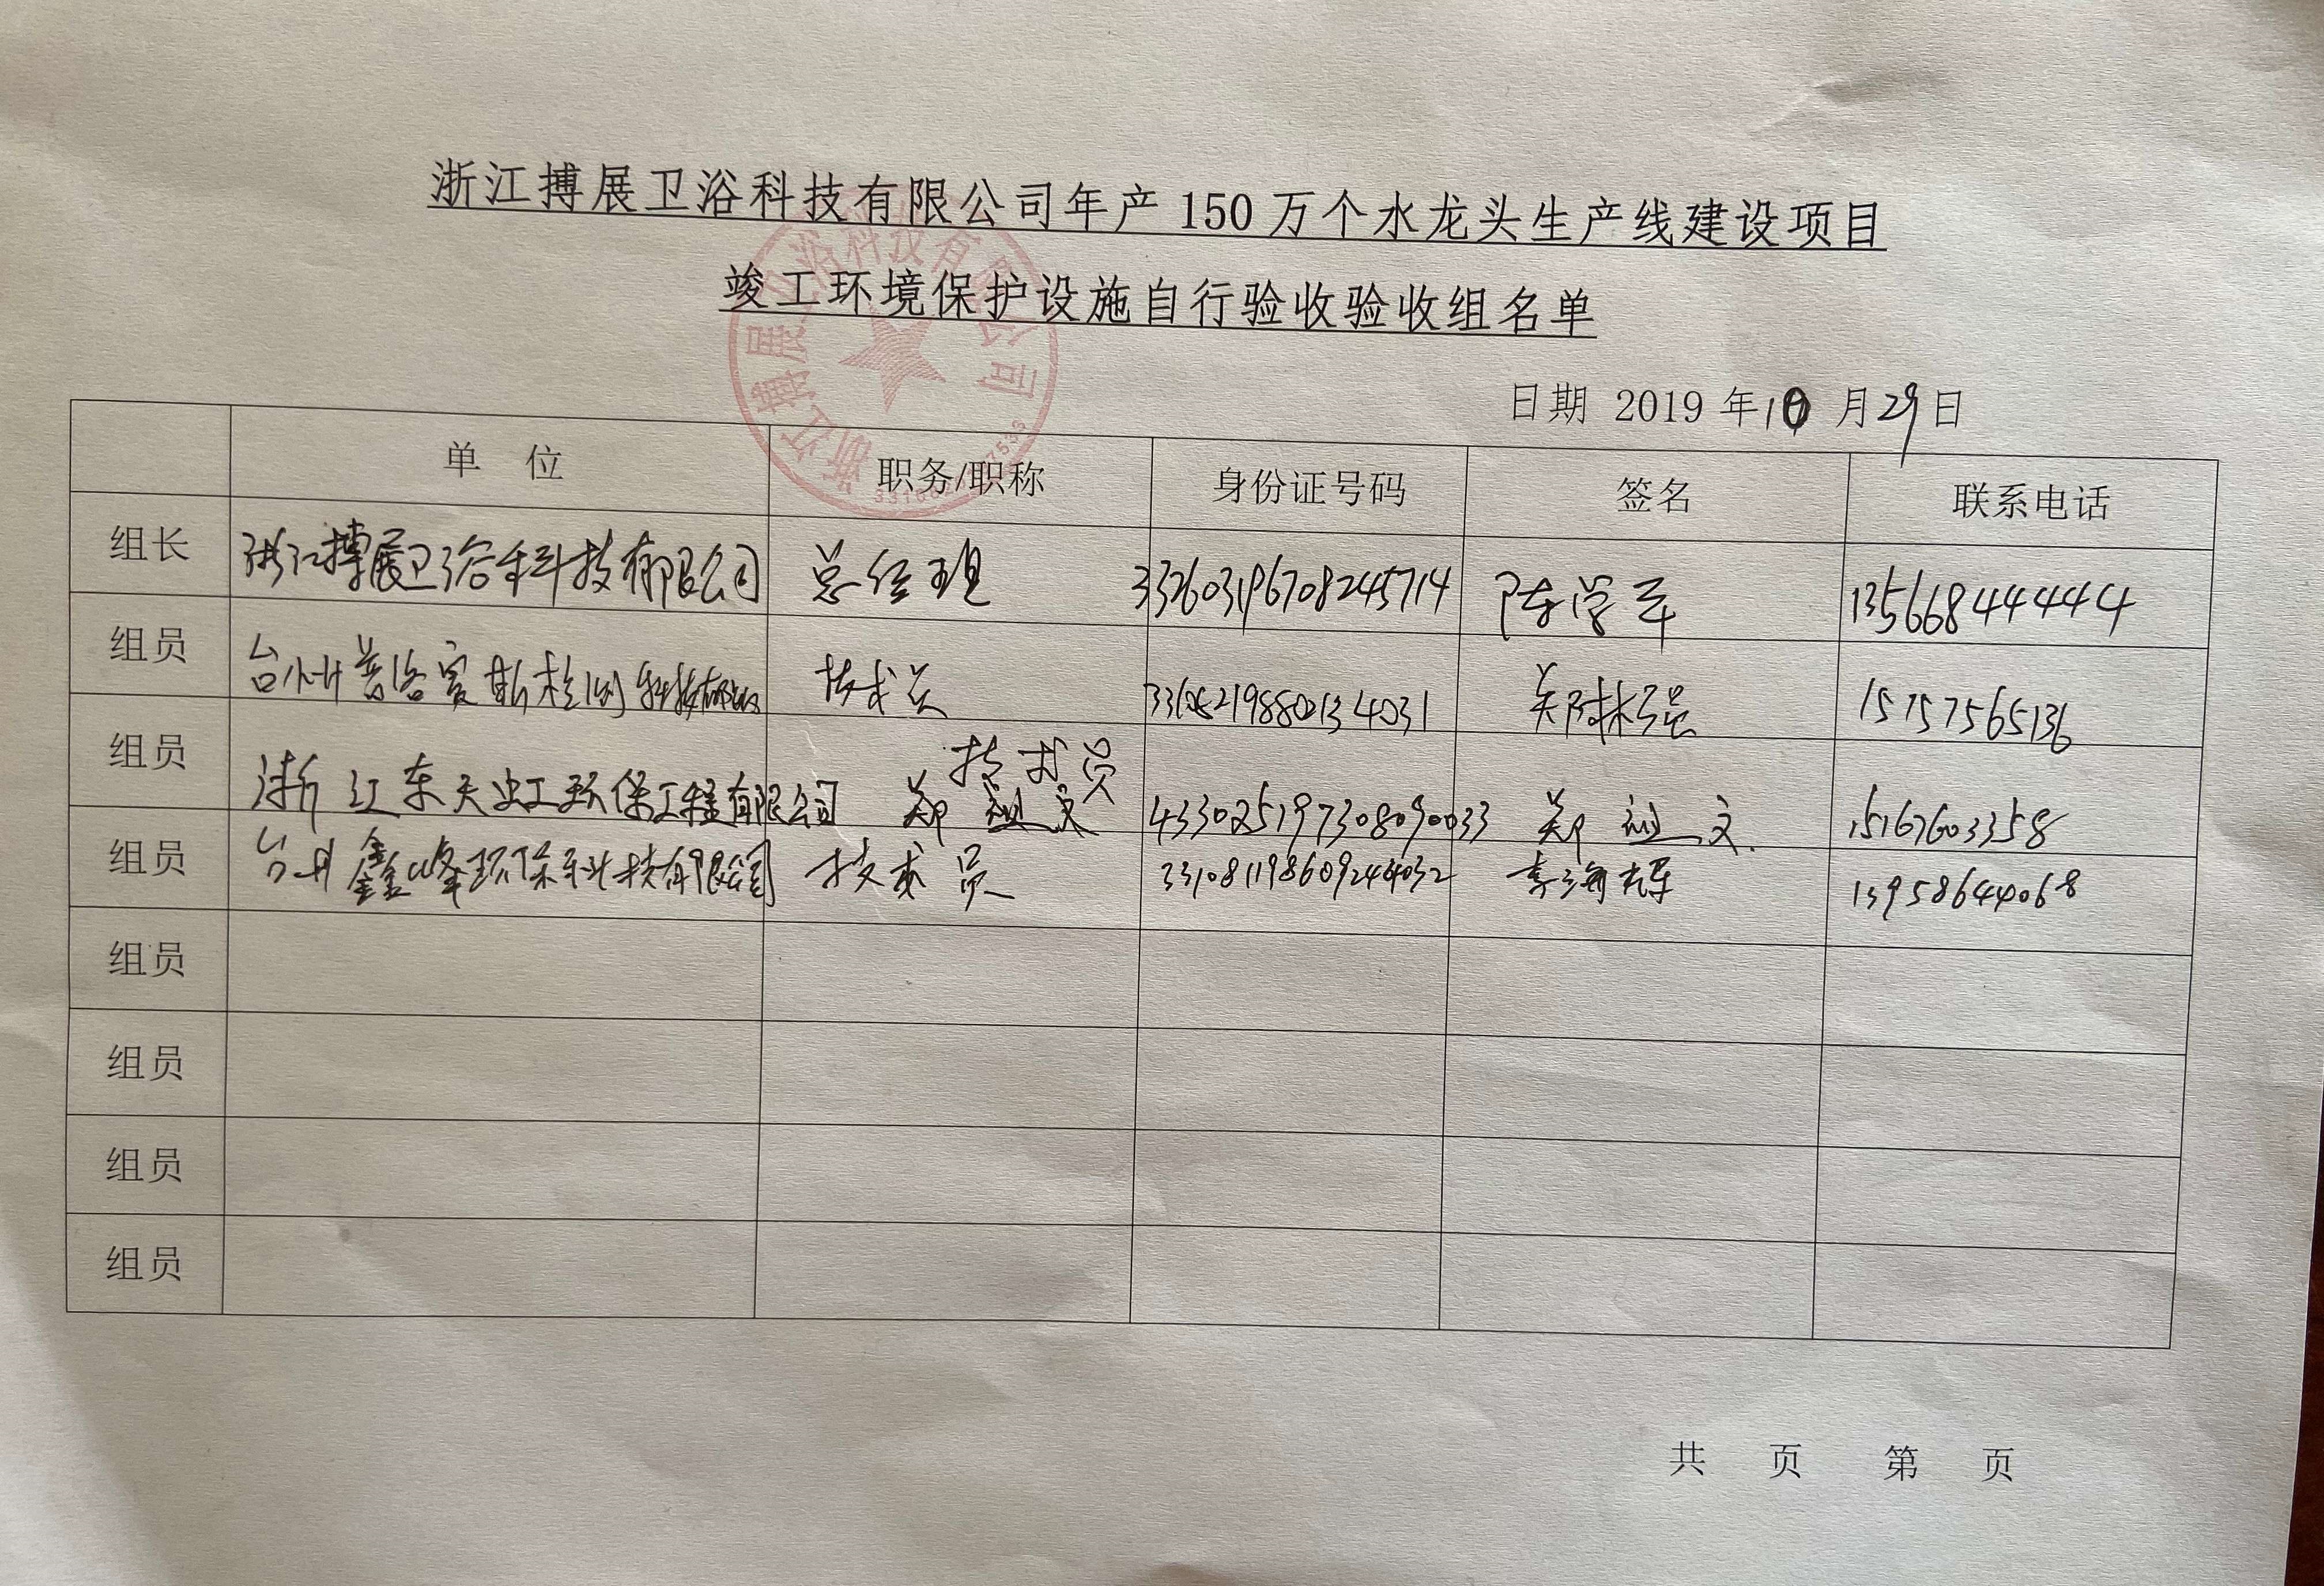 浙江搏展卫浴科技有限公司年产150万个水龙头生产线建设项目
竣工环境保护设施自行验收验收组名单
日期 2019年10月29日
单 位 职务/职称 身份证号码 签名 联系电话
组长 浙江搏展卫浴科技有限公司 总经理 332603196708245714 陈学军 13566844444
组员 台州普洛赛斯检测科技有限公司 技术员 郑林强 15757565136
技术员
组员 浙江东天虹环保工程有限公司 郑祖文 433025197308090033 郑祖文 15167603358
组员 台州鑫峰环保科技有限公司 技术员 李海辉 13958644068
组员
组员
组员
组员
共 页 第 页